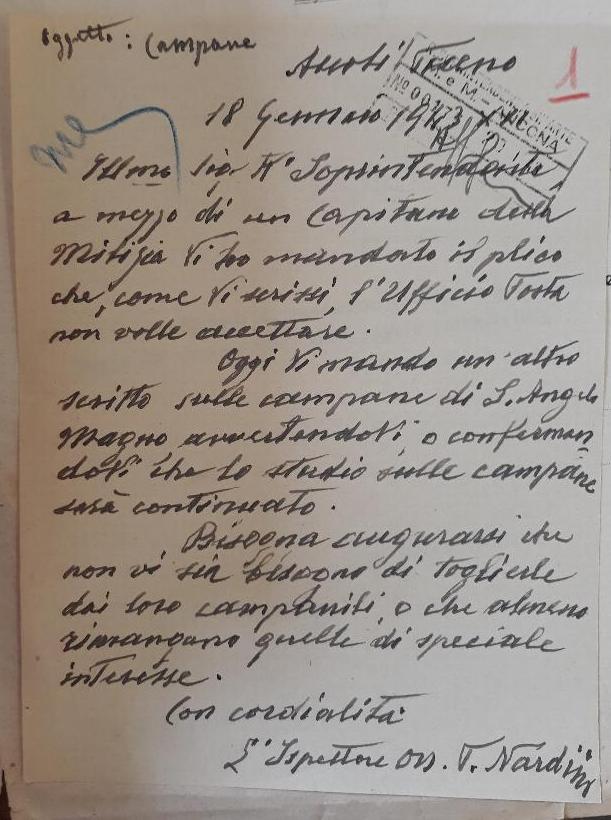 Oggetto: Campane
Ascoli Piceno
1
18 Gennaio 1943
Illmo Sig. R° Soprintendente,
a mezzo di un Capitano della
Milizia Vi ho mandato il plico
che, come Vi scrissi, l'Ufficio Posta
non volle accettare.
Oggi Vi mando un altro
scritto sulle campane di S. Angelo
Magno avvertendoVi, o conferman
doVi che lo studio sulle campane
sarà continuato.
Bisogna augurarsi che
non vi sia bisogno di toglierle
dai loro campanili, o che almeno
rimangano quelle di speciale
interesse.
Con cordialità
L'Ispettore On. T. Nardini